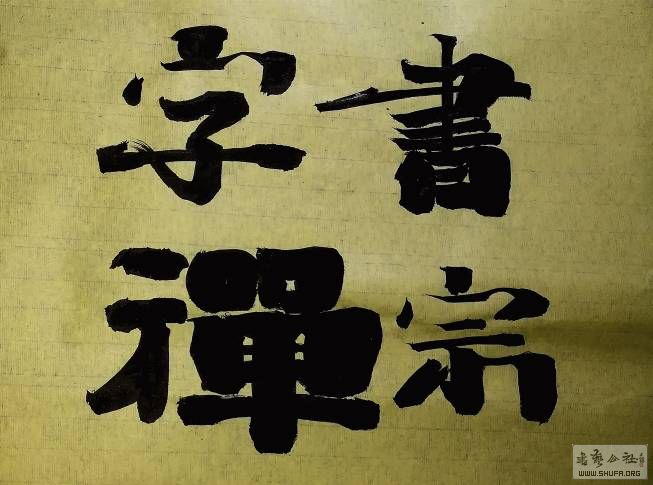 書宗
字禪
书藝公社
WWW.SHUFA.ORG